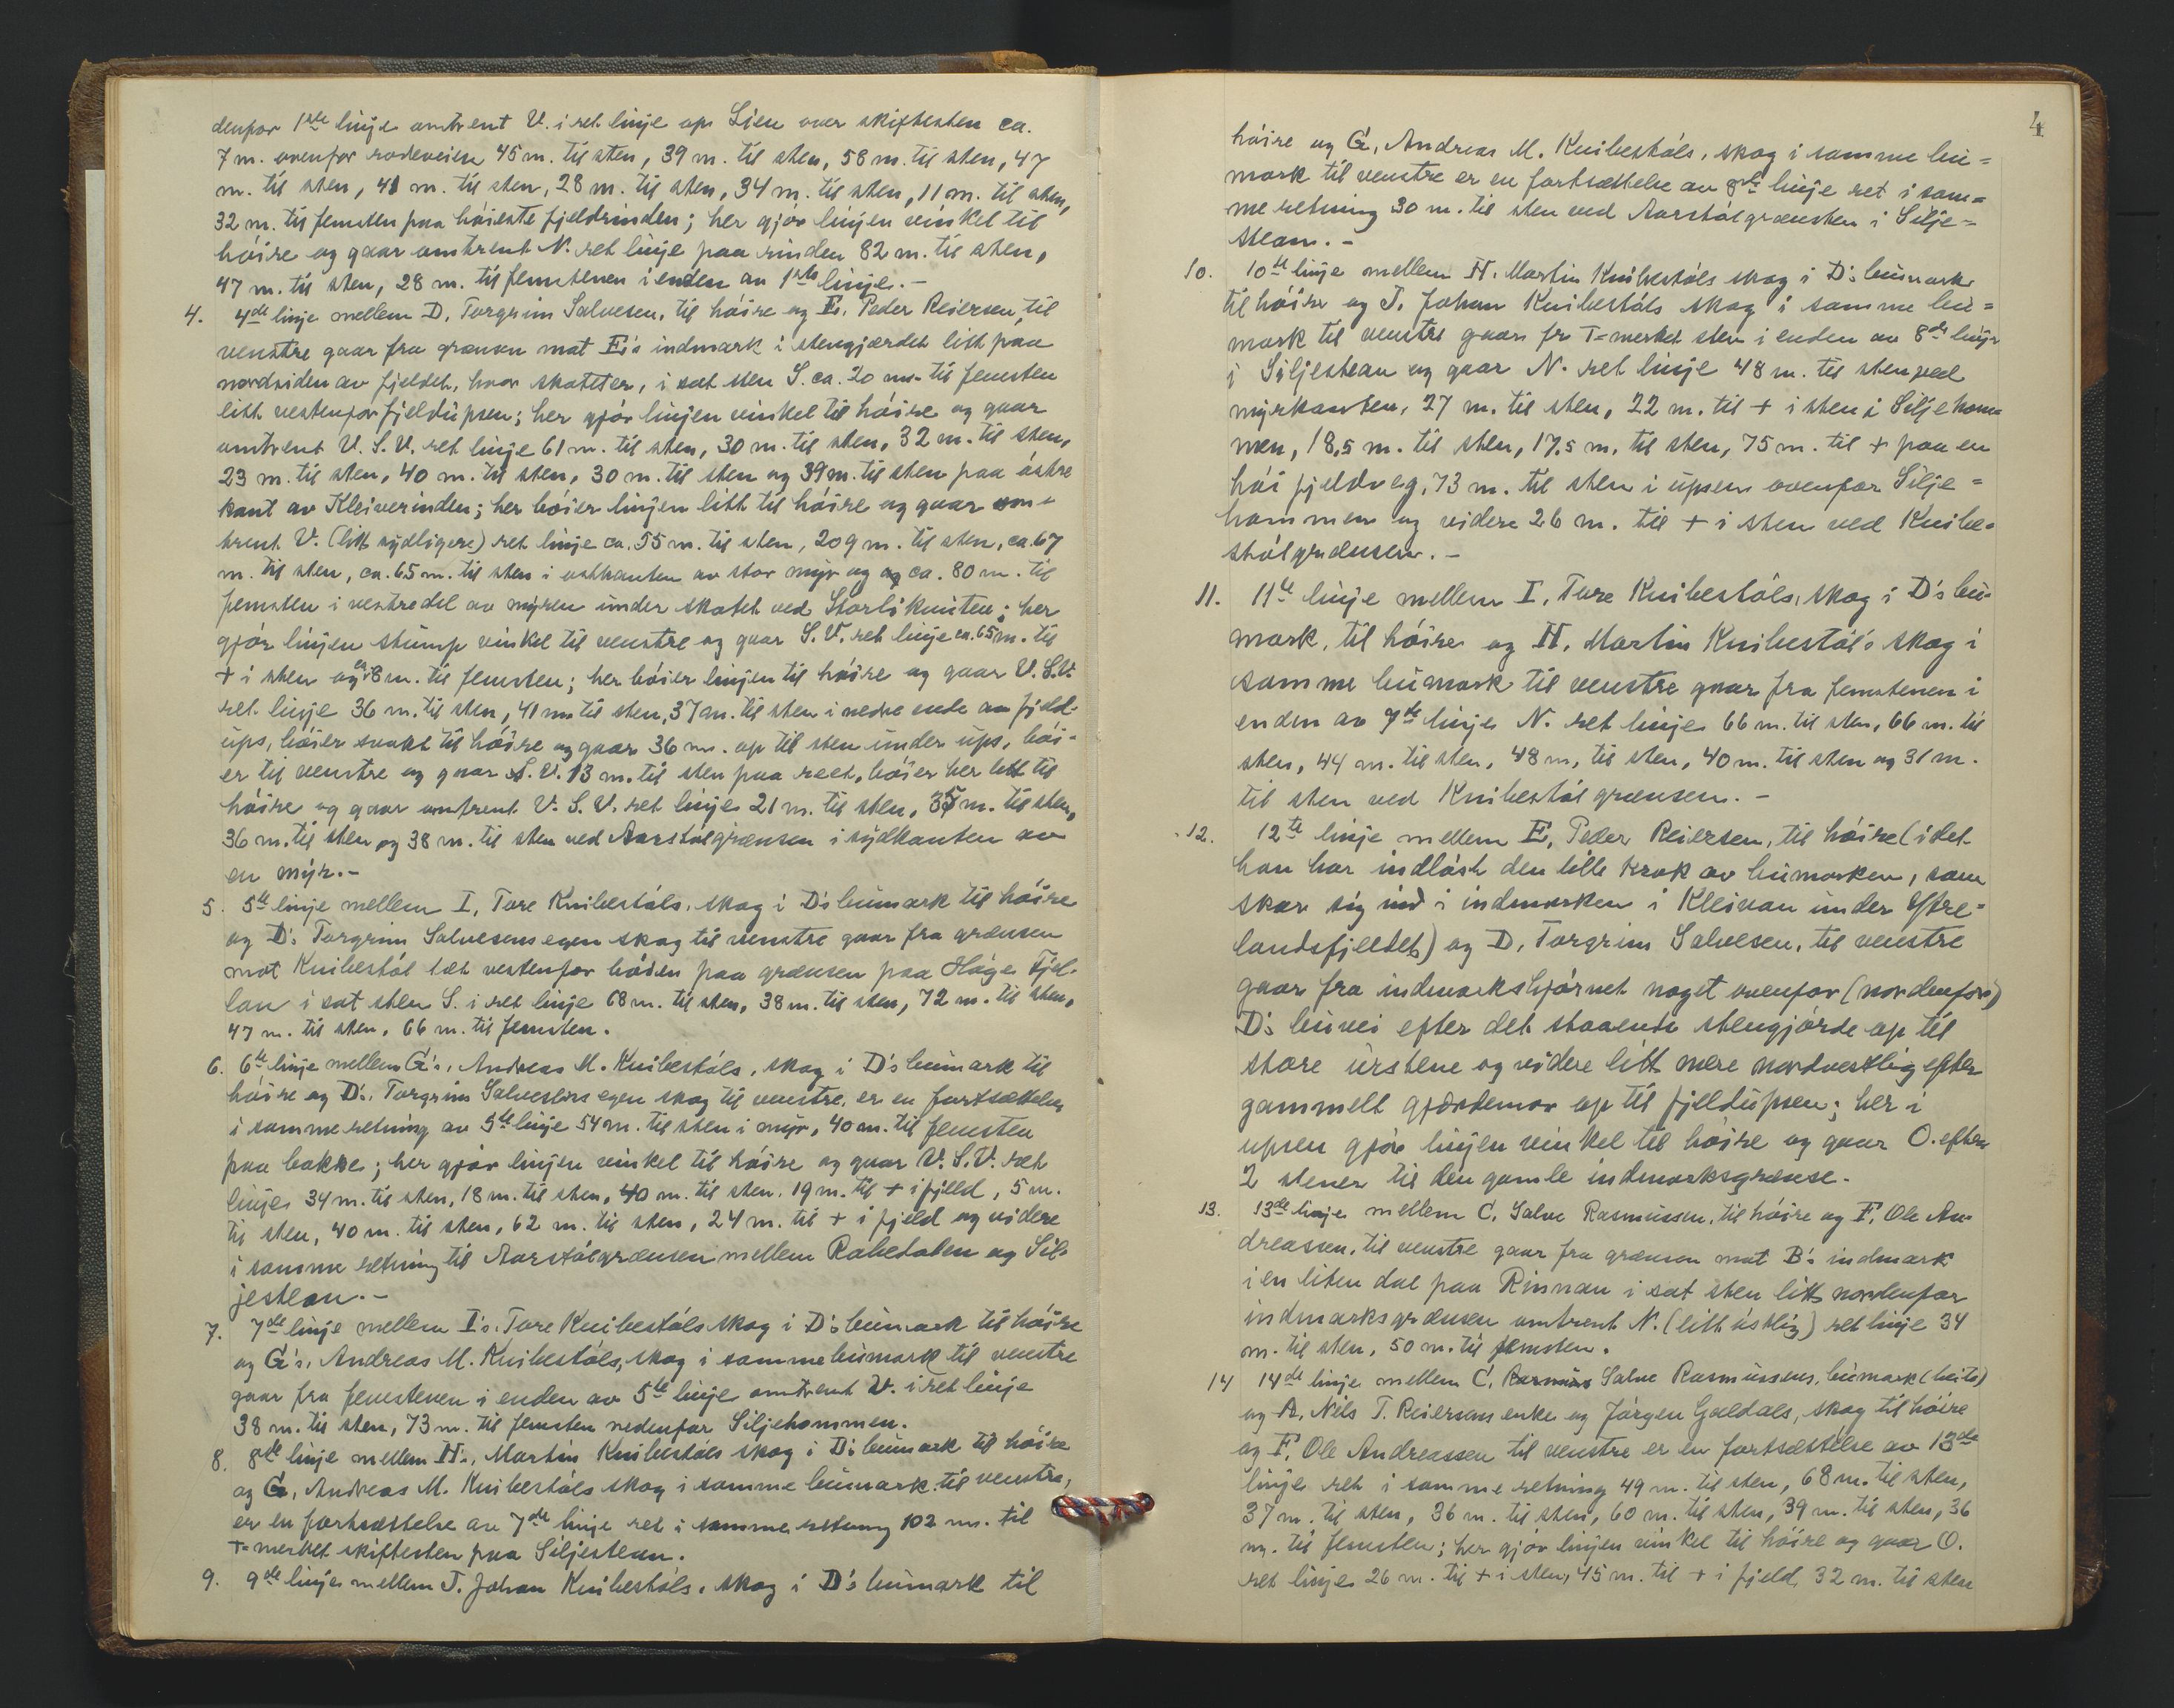 denfor 1ste linje omtrent V. i ret linje op Lien over skiftesten ca.
7 m. ovenfor rodeveien 45 m. til sten, 39 m. til sten, 58 m. til sten, 47
m. til sten, 41 m. til sten, 28 m. til sten, 34 m. til sten, 11 m. til sten,
32 m. til femsten paa høieste fjeldrinden; her gjør linjen vinkel til
høire og gaar omtrent N. ret linje paa rinden 82 m. til sten,
47 m. til sten, 28 m. til femstenen i enden av 1ste linje. -
4. 4de linje mellem D, Torgrim Salvesen, til høire og E, Peder Reiersen, til
venstre gaar fra grænsen mot E's indmark i stengjærdet litt paa
nordsiden av fjeldet, hvor skatet er, i sat sten S. ca. 20 m. til femsten
litt vestenfor fjeldupsen; her gjør linjen vinkel til høire og gaar
omtrent V. S. V. ret linje 61 m. til sten, 30 m. til sten, 32 m. til sten,
23 m. til sten, 40 m. til sten, 30 m. til sten og 39 m. til sten paa østre
kant av Kleiverinden; her bøier linjen litt til høire og gaar om-
trent V. (litt sydligere) ret linje ca. 55 m. til sten, 209 m. til sten, ca. 67
m. til sten, ca. 65 m. til sten i østkanten av stor myr og og ca. 80 m. til
femsten i vestre del av myren under skatet ved Storliknuten; her
gjør linjen stump vinkel til venstre og gaar S. V. ret linje ca. 65 m. til
+ i sten og 8 m. til femsten; her bøier linjen til høire og gaar V. S. V.
ret linje 36 m. til sten, 41 m. til sten, 37 m. til sten i nedre ende av fjeld-
ups, bøier svakt til høire og gaar 36 m. op til sten under ups, bøi-
er til venstre og gaar S. V. 13 m. til sten paa reet, bøier her litt til
høire og gaar omtrent V. S. V. ret linje 21 m. til sten, 35 m. til sten,
36 m. til sten og 38 m. til sten ved Aarstølgrænsen i sydkanten av
en myr. -
5. 5te linje mellem I, Tore Knibestøls, skog i D's bumark til høire
og D's Torgrim Salvesens egen skog til venstre gaar fra grænsen
mot Knibestøl tæt vestenfor bøien paa grænsen paa Høge Fjel-
lan i sat sten S. i ret linje 68 m. til sten, 38 m. til sten, 72 m. til sten,
47 m. til sten, 66 m. til femsten.
6. 6te linje mellem G's, Andreas M. Knibestøls, skog i D's bumark til
høire og D's, Torgrim Salvesens egen skog til venstre, er en fortsættelse
i samme retning av 5te linje 54 m. til sten i myr, 40 m. til femsten
paa bakke; her gjør linjen vinkel til høire og gaar V. S. V. ret
linje 34 m. til sten, 18 m. til sten, 40 m. til sten, 19 m. til + i fjeld, 5 m.
til sten, 40 m. til sten, 62 m. til sten, 24 m. til + i fjeld og videre
i samme retning til Aarstølgrænsen mellem Rabedalen og Sil-
jestean. -
7. 7de linje mellem I's, Tore Knibestøls skog i D's bumark til høire
og G's, Andreas M. Knibestøls, skog i samme bumark til venstre
gaar fra femstenen i enden av 5te linje omtrent V. i ret linje
38 m. til sten, 73 m. til femsten nedenfor Siljehommen.
8. 8de linje mellem H's, Martin Knibestøls skog i D's bumark til høire
og G, Andreas M. Knibestøls skog i samme bumark til venstre,
er en fortsættelse av 7de linje ret i samme retning 102 m. til
T-merket skiftesten paa Siljestean.
9. 9de linje mellem J. Johan Knibestøls, skog i D's bumark til
4
høire og G, Andreas M. Knibestøls, skog i samme bu=
mark til venstre er en fortsættelse av 8de linje ret i sam=
me retning 30 m. til sten ved Aarstølgrænsen i Silje=
stean. -
10. 10de linje mellem H. Martin Knibestøls skog i D's bumark
til høire og J. Johan Knibestøls skog i samme bu=
mark til venstre gaar fr T=merket sten i enden av 8de linje
i Siljestean og gaar N. ret linje 48 m. til sten ved
myrkanten, 27 m. til sten, 22 m. til + i sten i Siljehom-
men, 18,5 m. til sten, 17,5 m. til sten, 75 m. til + paa en
høi fjeldveg, 73 m. til sten i upsen ovenfor Silje=
hommen og videre 26 m. til + i sten ved Knibe-
stølgrænsen. -
11. 11te linje mellem I, Tore Knibestøls, skog i D's bu-
mark, til høire og H, Martin Knibestøl's skog i
samme bumark til venstre gaar fra femstenen i
enden av 7de linje N. ret linje 66 m. til sten, 66 m. til
sten, 44 m. til sten, 48 m. til sten, 40 m. til sten og 31 m.
til sten ved Knibestølgrænsen. -
12. 12te linje mellem E, Peder Reiersen, til høire (idet
han har indløst den lille krok av bumarken, som
skar sig ind i indmarken i Kleivan under Øfre=
landsfjeldet) og D, Torgrim Salvesen, til venstre
gaar fra indmarkshjørnet noget ovenfor (nordenfor)
D's buvei efter det staaende stengjørde op til
store urstene og videre litt mere nordvestlig efter
gammelt gjærdemor op til fjeldupsen; her i
upsen gjør linjen vinkel til høire og gaar O. efter
2 stener til den gamle indmarksgrænse.
13. 13de linje mellem C, Salve Rasmussen, til høire og F, Ole An-
dreassen, til venstre gaar fra grænsen mot B's indmark
i en liten dal paa Rinnan i sat sten litt nordenfor
indmarksgrænsen omtrent N. (litt østlig) ret linje 34
m. til sten, 50 m. til femsten.
14 14de linje mellem C, Rasmus Salve Rasmussens, bumark (beite)
og A, Nils T. Reiersens enke og Jørgen Galdals, skog til høire
og F, Ole Andreassen til venstre er en fortsættelse av 13de
linje ret i samme retning 49 m. til sten, 68 m. til sten,
37 m. til sten, 36 m. til sten, 60 m. til sten, 39 m. til sten, 36
m. til femsten; her gjør linjen vinkel til høire og gaar O.
ret linje 26 m. til + i sten, 45 m. til + i fjeld, 32 m. til sten